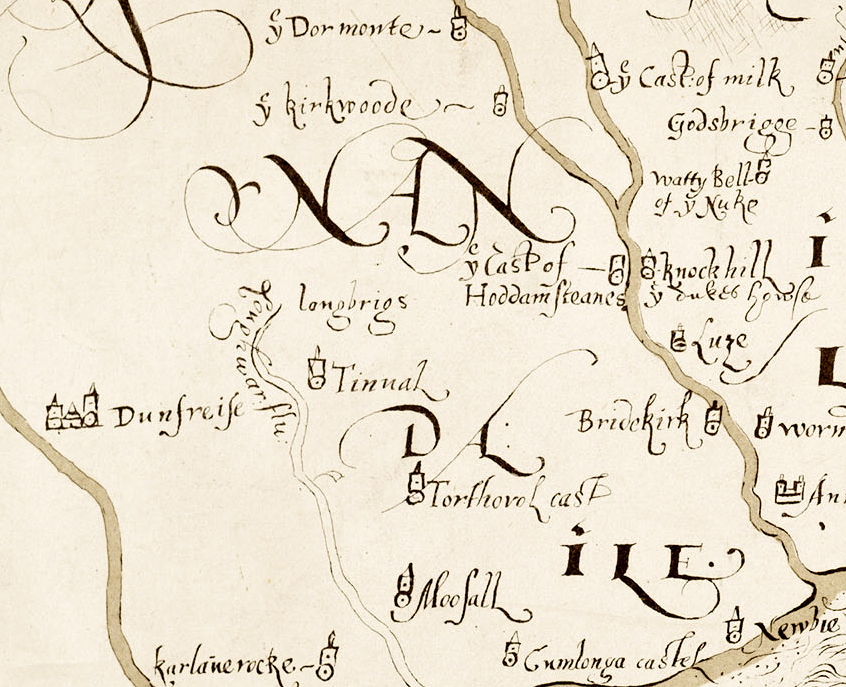 ẙ Dormonte
ẙ Cast. of milk
ẙ kirkwoode
Godsbrigge
watty Bell
of ẙ Nuke
NAN
ẙ Cast of
Hoddamsteanes
knockhill
ẙ dukes howse
longbrigs
Luze
Tinual
Dunfreise
Loughwar flu:
Bridekirk
worm
DAL
Torthorol cast
An
ILE.
Moosall
Newbie
karlauerocke
Cumlonga castel